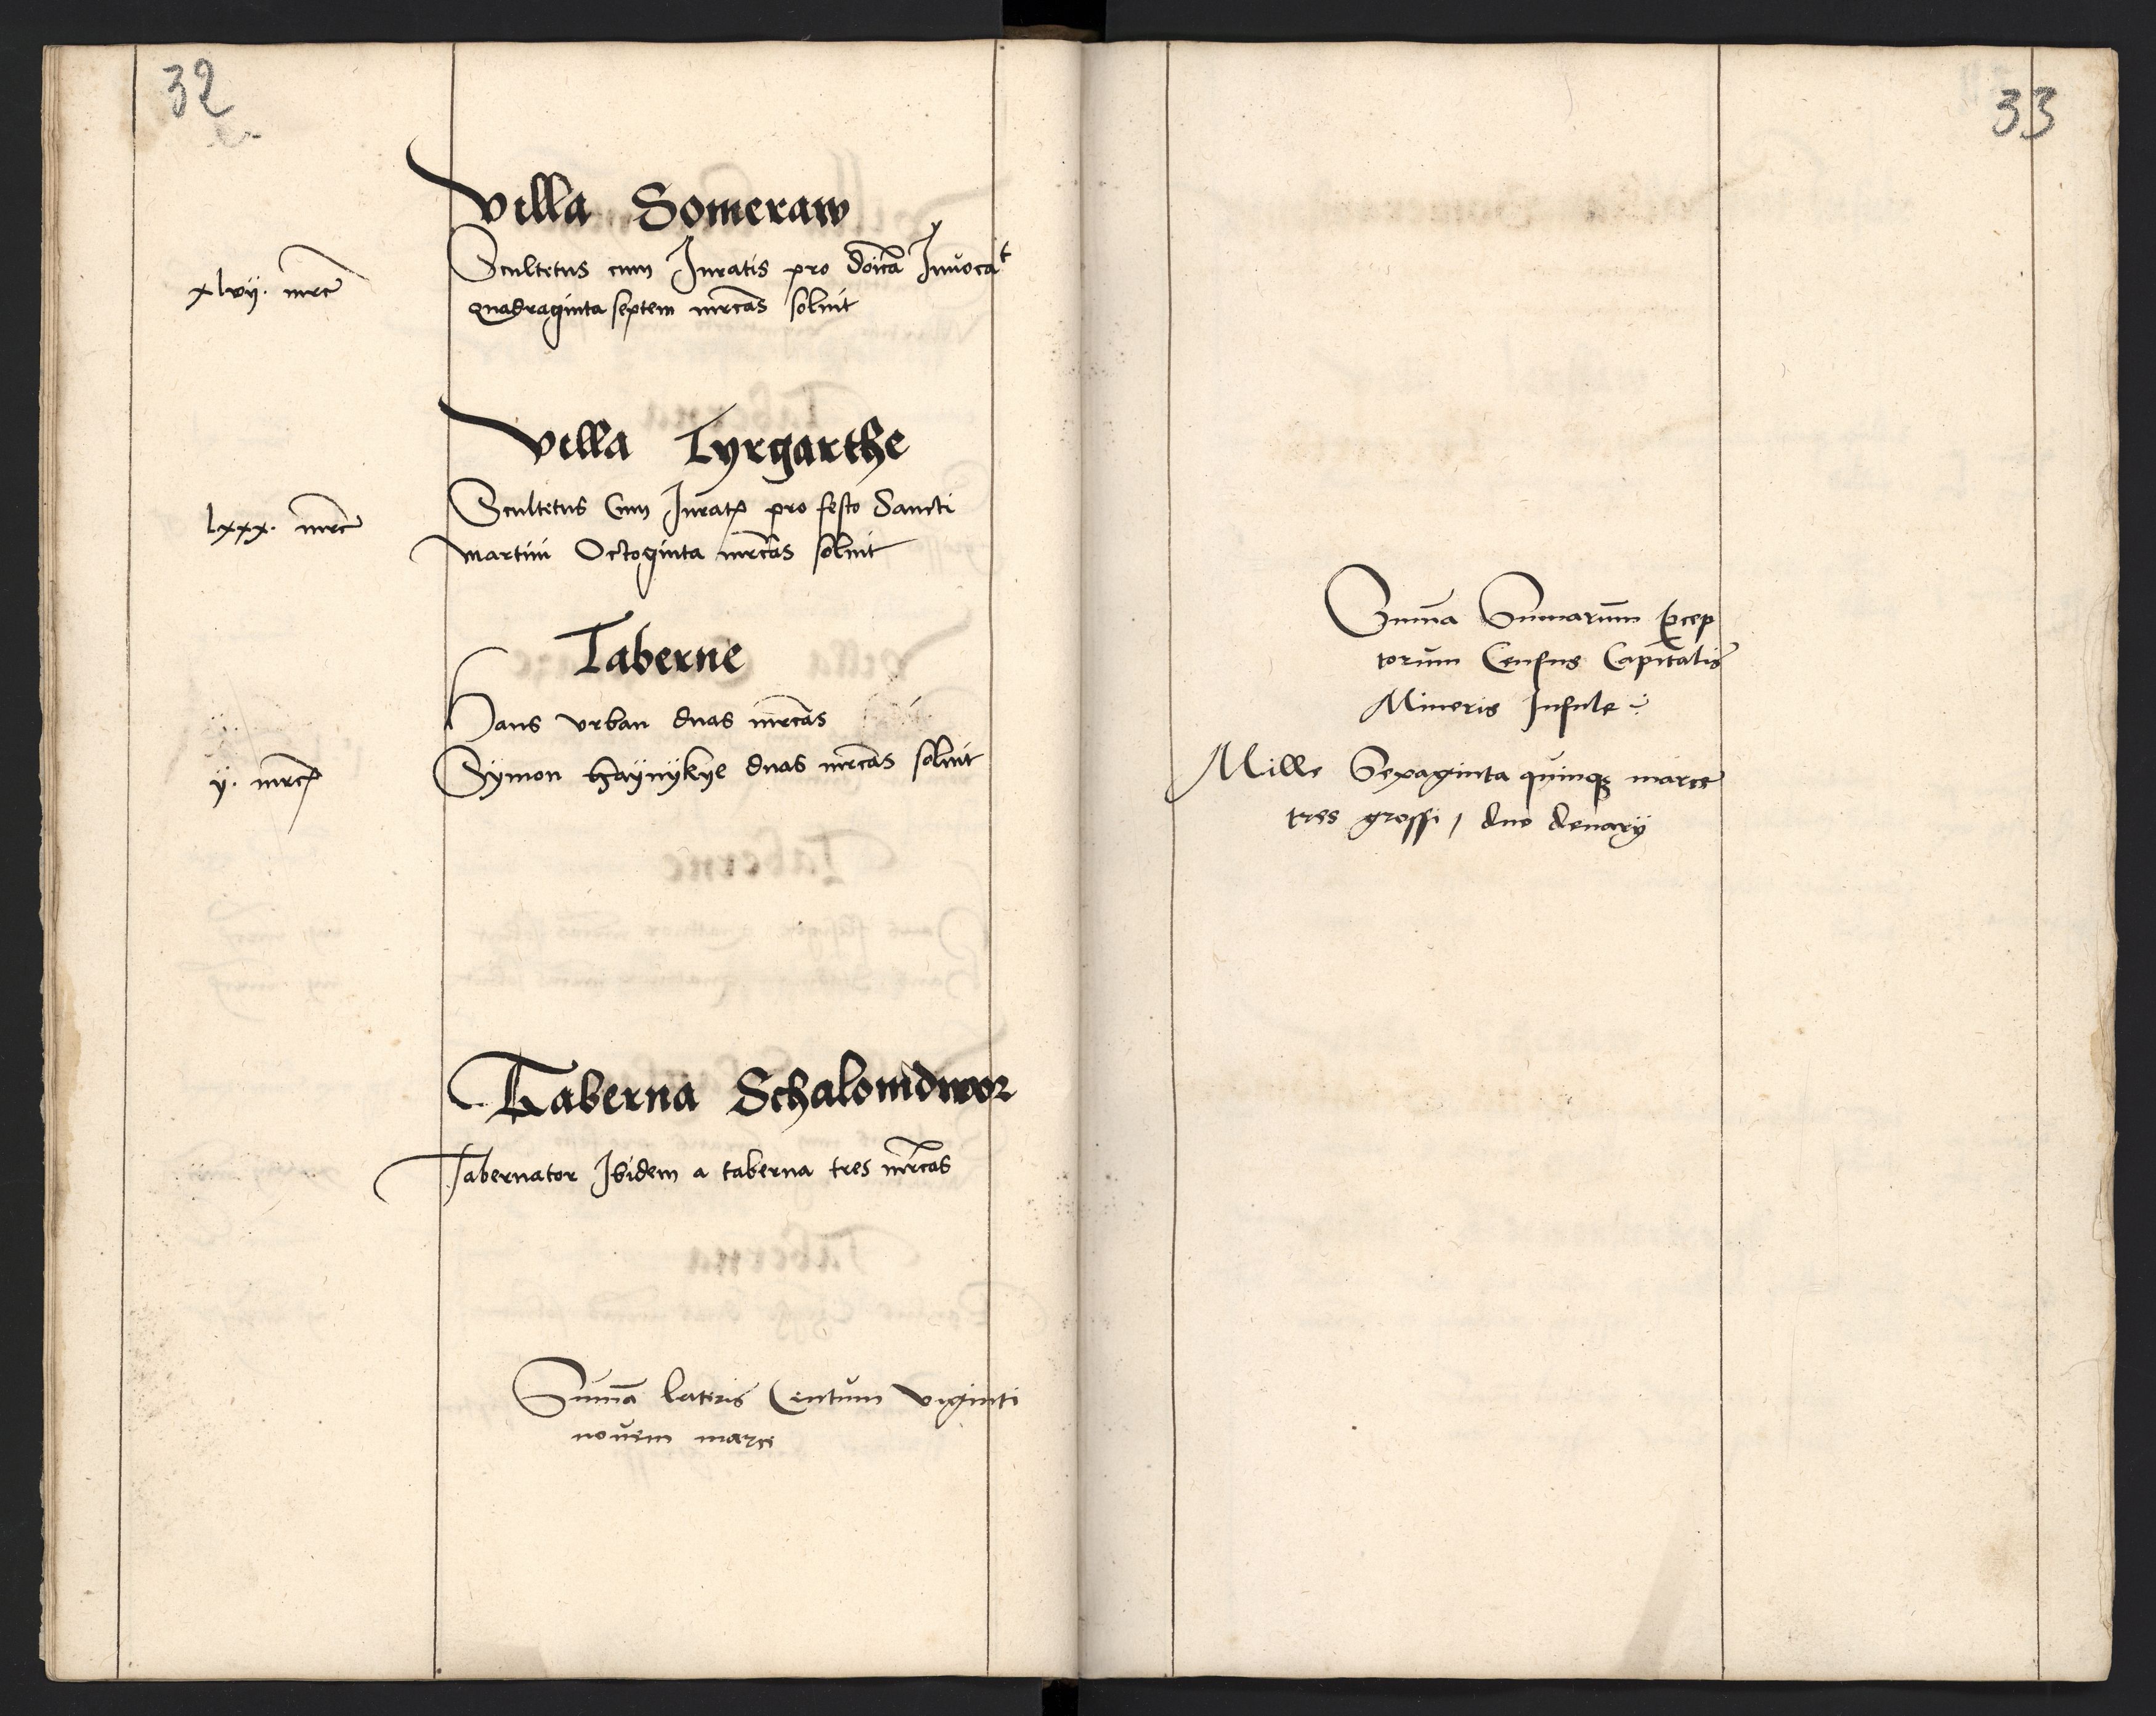 32
Villa Someraw
xlvij. mrc Scultetus cum Juratis pro doica Invocat
quadraginta septem mrcas soluit
Villa Tyrgarthe
lxxx. mrc Scultetus Cum Jurat pro festo Sancti
martini Octoginta mrcas soluit
Taberne
Hans vrban duas mrcas
ij. mrc Symon haÿnÿkÿe duas mrcas soluit
Taberna Schalomdwor
Tabernator Ibidem a taberna tres mrcas
Suma lateris Centum viginti
novem marce
33
Suma Sumarum
torum Census Capitalis
Mineris Insule
Mille Sexaginta quinq marce
tres grossi / duo denarÿ